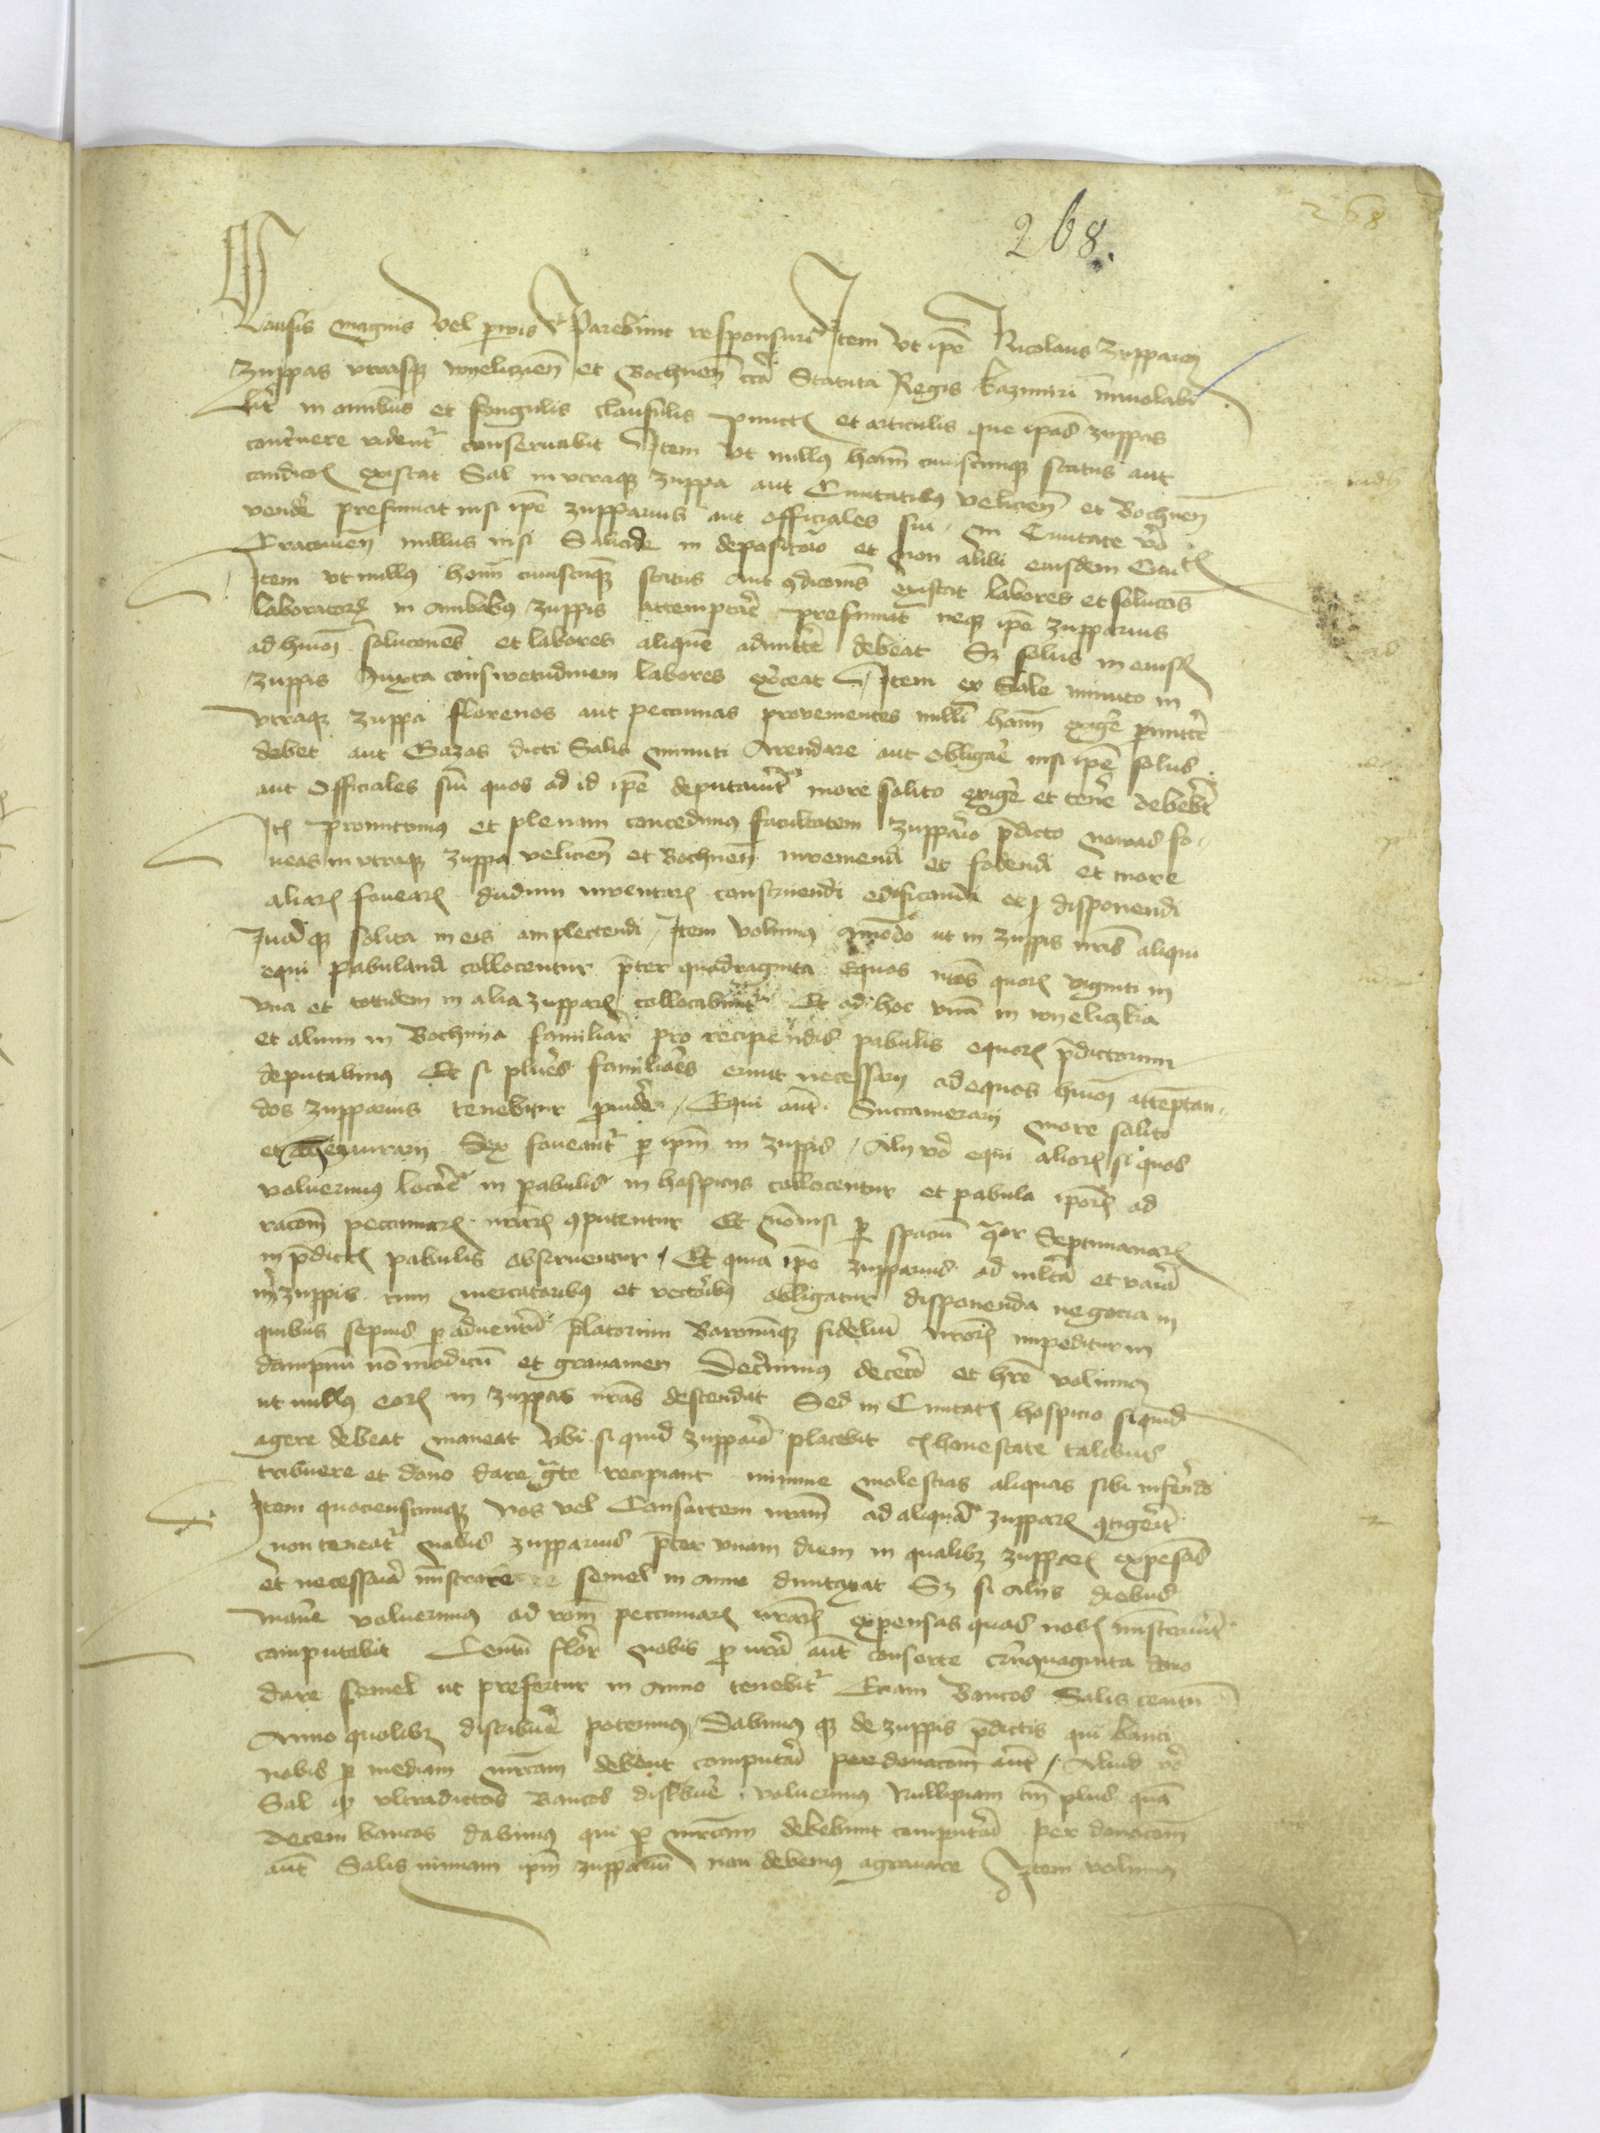 268
268.
Causis magnis vel parvis Parebunt responsuri Item ut ipe Nicolaus Zupparius
zuppas utrasq wyeliczien et Bochnen Statuta Regis Kazimiri inviolabi
liter in omnibus et singulis clausulis punctis et articulis que ipas zuppas
videntr conservabit Item ut nullus homi cuiuscunq status aut
condicois existat Sal in utraque zuppa aut Civitatibus velicien et Bochnen
vendere presumat nisi ipe zupparius aut officiales sui in Civitate vero
Cracovien nullus nisi in depositorio et non alibi eiusdem
Item ut nullus homi cuiuscunq status aut condicois existat labores et
laboratores in ambabus zuppis attemptare presumat neq ipe zupparius
ad huiusmodi et labores aliquem admittere debeat Sz solus in
zuppis Juxta conswetudinem labores exerceat Item ex Sale minuto in
utraq zuppa florenos aut peccunias provenientes nulli exigere permittere
debet aut Bazas dicti Salis minuti Arendare aut obligare nisi ipe solus
aut Officiales sui quos ad id ipe deputaverit more solito exigere et tenere debebit
Itm promittimus et plenam concedimus facultatem zuppario predicto novas fo
veas in utraq zuppa velicien et Bochnen inveniendi et fodendi et more
aliarum fovearum dudum inventarum construendi edificandi et disponendi
solita in eis amplectendi Item volumus ut in zuppis nris aliqui
equi Pabulandi collocentur preter quadraginta Equos nros quorum viginti in
una et totidem in alia zupparum collocabuntur Et ad hoc unum in wyeliczkia
et alium in Bochnya familiarem pro recipiendis pabulis equorum predictorum
deputabimus Et si plures familiares erunt necessarii ad equos huiusmodi
dos zupparius tenebitur providere Equi aut Succamerarii more solito
et Sex foveantur per ipm in zuppis Alii vero equi aliorum si quos
voluerimus locare in pabulis in hospiciis collocentur et pabula iporum ad
racom peccuniarum nrarum computentur Et per spacium quatuor Septimanarum
in predictis pabulis observentur Et quia ipe zupparius ad multa et varia
in zuppis cum mercatoribus et vectoribus obligatur disponenda negocia in
quibus sepius per adventum prelatorum Baronumq fidelium nrorum impeditur in
dampnum non modicum et gravamen Decrevimus et volumus
ut nullus eorum in zuppas nras descendat Sed in Civitatis hospicio siquid
agere debeat maneat Ubi si quid zuppario placebit honestate talibus
tribuere et dono dare grate recipiant minime molestias aliquas sibi inferendo
Item quocienscunq Nos vel Consortem nram ad aliquam zupparum contigerit
non teneatur nobis zupparius preter unam diem in qualibz zupparum expensas
et necessaria ministrare semel in Anno duntaxat Sz si aliis diebus
manere voluerimus ad racom peccuniarum nrarum expensas quas nobis ministraverit
computabit Centum flor nobis per nra aut consorte quinquaginta dono
dare semel ut prefertur in Anno tenebitr Eciam Bancos Salis centum
Anno quolibz distribuere poterimus Dabimus q de zuppis predictis qui banci
nobis per mediam mrcam debent computari per donacom aut Aliud vero
Sal q ultra dictos Bancos distribuere voluerimus plus quam
Decem bancos dabimus qui per mrcam debebunt computari per donacom
aut Salis nimiam ipm zupparium non debemus agravare Item volumus